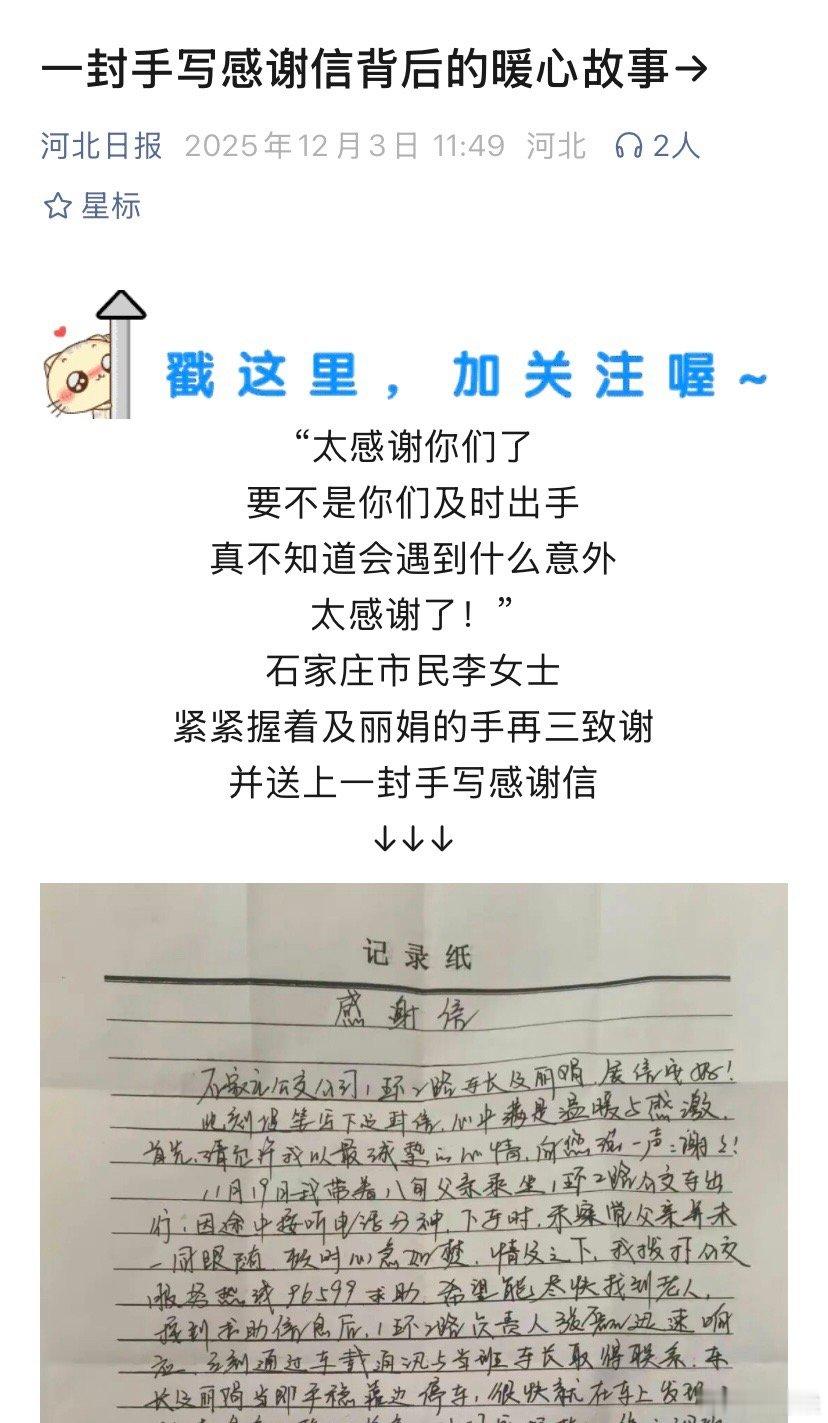 一封手写感谢信背后的暖心故事→
河北日报 2025年12月3日 11:49 河北 2人
星标
戳这里，加关注喔~
“太感谢你们了
要不是你们及时出手
真不知道会遇到什么意外
太感谢了！”
石家庄市民李女士
紧紧握着及丽娟的手再三致谢
并送上一封手写感谢信
↓↓↓
记录纸
感谢信
石家庄公交公司1环2路车长及丽娟，展信安好！
此刻提笔写下这封信，心中满是温暖与感激，
首先，请允许我以最诚挚的心情，向您说一声：谢谢！
11月19日我带着八旬父亲乘坐1环2路公交车出
行，因途中接听电话分神，下车时，未察觉父亲并未
一同跟随，顿时心急如焚，情急之下，我拨打公交
服务热线96599求助，希望能尽快找到老人，
接到求助信息后，1环2路负责人张磊迅速响
应，立刻通过车载通讯与当班车长取得联系，车
长及丽娟当即平稳靠边停车，很快就在车上发现